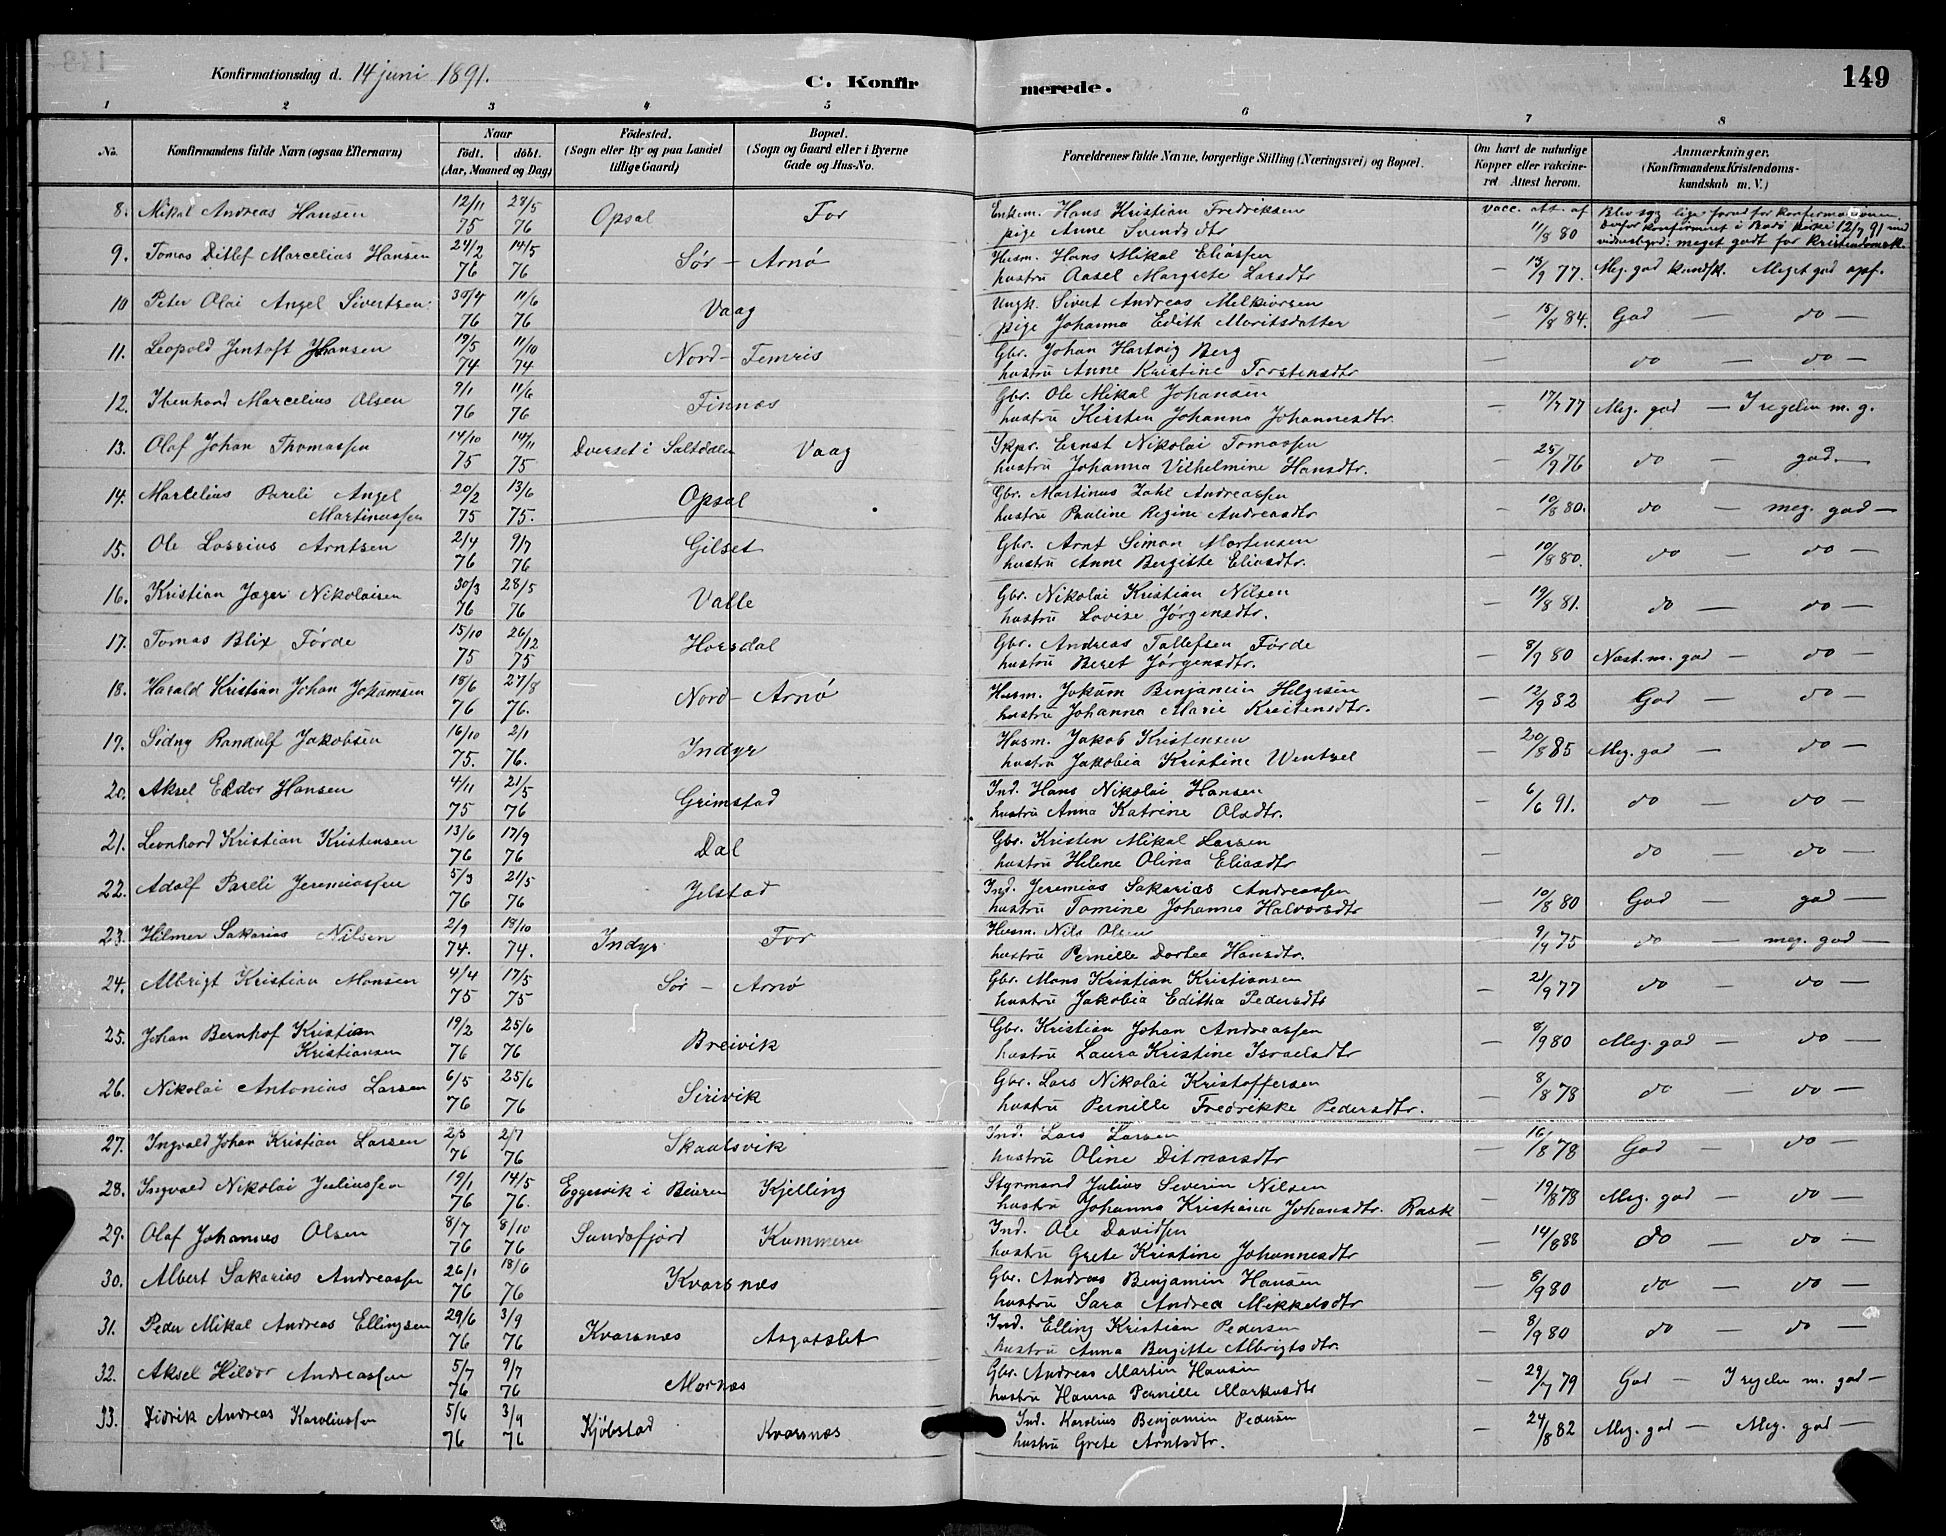 149
Konfirmationsdag d. 14 juni 1891.
C. Konfirmerede.
1 2 3 4 5 6 7 8
No. Konfirmandens fulde Navn (ogsaa Efternavn) Naar födt. döbt. (Aar, Maaned og Dag) Födested. (Sogn eller By og paa Landet tillige Gaard) Bopæl. (Sogn og Gaard eller i Byerne Gade og Hus-No. Forældrenes fulde Navne, borgerlige Stilling (Næringsvei) og Bopæl. Om havt de naturlige Kopper eller vakcineret. Attest herom. Anmærkninger. (Konfirmandens Kristendomskundskab m. V.)
8. Mikal Andreas Hansen 12/11 75 28/5 76 Opsal For Enkem. Hans Kristian Fredriksen vacc. att. af 11/8 80 Blev syg lige forud for konfirmationen.
pige Anne Svendsdtr Derfor konfirmeret i Bodö kirke 12/7 91 med
vidnesbyrd: meget godt for kristendomsk.
9. Tomas Ditlef Marcelius Hansen 24/2 76 14/5 76 Sör - Arnø Husm. Hans Mikal Eliassen — 13/9 77. Meg. god kundsk. Meget god opf.
hustru Aasel Margrete Larsdtr
10 Peter Olai Angel Sivertsen 30/4 76 11/6 76 Vaag Ungk. Sivert Andreas Melkiorsen — 15/8 84. God — do —
pige Johanna Edith Moritsdatter
11. Leopold Jentoft Johansen 19/5 74 11/10 74 Nord - Femris Gbr. Johan Hartvig Berg — do — do —
hustru Anne Kristine Torstensdtr
12. Ibenhard Marcelius Olsen 9/1 76 11/6 76 Finnæs Gbr. Ole Mikal Johansen — 17/7 77 Meg. god — I regelen m. g.
hustru Kirsten Johanna Johannesdtr.
13. Olaf Johan Thomassen 14/10 75 14/11 75 Dverset i Saltdalen Vaag Skpr. Ernst Nikolai Tomassen — 25/9 76 do — god —
hustru Johanna Vilhelmine Hansdtr.
14. Marcelius Pareli Angel Martinussen 20/2 75 13/6 75. Opsal Gbr. Martinus Zahl Andreassen — 10/8 80. do — meg. god —
hustru Pauline Regine Andreasdtr
15. Ole Lossius Arntsen 2/4 76 9/7 76 Gilset Gbr. Arnt Simon Mortensen — 10/8 80. do — do —
hustru Anne Bergitte Eliasdtr.
16. Kristian Jæger Nikolaisen 30/3 76 28/5 76 Valle Gbr. Nikolai Kristian Nilsen — 19/8 81. do — do —
hustru Lovise Jørgensdtr.
17. Tomas Blix Førde 15/10 75 26/12 75 Horsdal Gbr. Andreas Tollefsen Førde — 8/9 80 Næst. m. god — do —
hustru Beret Jørgensdtr.
18. Harald Kristian Johan Jokumsen 18/6 76 27/8 76. Nord - Arnø Husm. Jokum Benjamin Helgesen — 12/9 82 God — do —
hustru Johanna Marie Kristensdtr.
19. Sidny Randulf Jakobsen 16/10 75. 2/1 76. Indyr Husm. Jakob Kristensen — 20/8 85 Meg. god — do —
hustru Jakobia Kristine Wentzel
20. Aksel Eldor Hansen 4/11 75 21/5 76 Grimstad Ind. Hans Nikolai Hansen — 6/6 91. do — do —
hustru Anna Katrine Olsdtr.
21. Leonhard Kristian Kristensen 13/6 76 17/9 76 Dal Gbr. Kristen Mikal Larsen — do — do —
hustru Helene Olina Eliasdtr
22. Adolf Pareli Jeremiassen 5/3 76 21/5 76 Jelstad Ind. Jeremias Sakarias Andreassen — 10/8 80 God — god —
hustru Tomine Johanna Halvorsdtr
23. Hilmer Sakarias Nilsen 2/9 74. 18/10 74. Indyr For Husm. Nils Olsen — 9/9 75 do — meg. god —
hustru Pernille Dortea Hansdtr.
24. Albrigt Kristian Monsen 4/4 75 17/5 75 Sör - Arnø Gbr. Mons Kristian Kristiansen — 21/9 77 do — do —
hustru Jakobia Editha Pedersdtr
25. Johan Bernhof Kristian Kristiansen 19/2 76 25/6 76 Breivik Gbr. Kristian Johan Andreassen — 8/9 80 Meg. god — do —
hustru Laura Kristine Israelsdtr
26. Nikolai Antonius Larsen 6/5 76 25/6 76 Sirivik Gbr. Lars Nikolai Kristoffersen — 8/8 78 do — do —
hustru Pernille Fredrikke Pedersdtr.
27. Ingvald Johan Kristian Larsen 2/3 76 2/7 76 Skaalsvik Ind. Lars Larsen — 16/8 78 God — do —
hustru Oline Ditmarsdtr
28. Ingvald Nikolai Juliussen 19/1 76 14/5 76. Eggesvik i Beieren Kjelling Styrmand Julius Severin Nilsen — 19/8 78 Meg. god — do —
hustru Johanna Kristiana Johansdtr. Rask
29. Olaf Johannes Olsen 8/7 76 8/10 76 Sundsfjord Kummeren Ind. Ole Davidsen — 14/8 88 do — do —
hustru Grete Kristine Johannesdtr
30. Albert Sakarias Andreassen 26/1 76 18/6 76 Kvarsnæs Gbr. Andreas Benjamin Hansen — 8/9 80 do — do —
hustru Sara Andrea Mikkelsdtr
31. Peder Mikal Andreas Ellingsen 29/6 76 3/9 76 Kvarsnæs Asgotslet Ind. Elling Kristian Pedersen — 8/9 80 do — do —
hustru Anna Bergitte Albrigtsdtr.
32. Aksel Hildor Andreassen 5/7 76 9/7 76 Mornæs Gbr. Andreas Martin Hansen — 29/7 79 God — I regelen m. god —
hustru Hanna Pernille Markusdtr
33. Didrik Andreas Karoliussen 5/6 76 3/9 76 Kjøbstad Kvarsnæs Ind. Karolius Benjamin Pedersen — 24/8 82 Meg. god — Meg. god —
hustru Grete Arntsdtr.